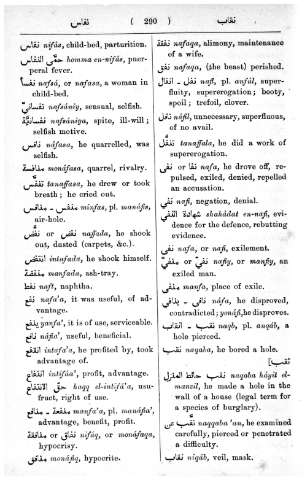 نفاس
( 290 )
نقاب
نفاس nifás, child-bed, parturition.
حمى النفاس homma en-nifás, puer-
peral fever.
نفسا nafsá, or nafasa, a woman in
child-bed.
نفساني nafsániy, sensual, selfish.
نفسانية nafsániya, spite, ill-will;
selfish motive.
نافس náfasa, he quarrelled, was
selfish.
منافسة monáfasa, quarrel, rivalry.
تنفس tanaffasa, he drew or took
breath; he cried out.
منفس - منافس minfas, pl. manáfis,
air-hole.
نفض or نفض naffada, he shook
out, dusted (carpets, &c.).
انتفض intafada, he shook himself.
منفضة manfada, ash-tray.
نفط naft, naphtha.
نفع nafa'a, it was useful, of ad-
vantage.
ينفع yanfa', it is of use, serviceable.
نافع náfia', useful, beneficial.
انتفع intafa'a, he profited by, took
advantage of.
انتفاع intifá'a, profit, advantage.
حق الانتفاع haqq el-intifá'a, usu-
fruct, right of use.
منفعة - منافع manfa'a, pl. manáfia',
advantage, benefit, profit.
نفاق or منافقة nifáq, or monáfaqa,
hypocrisy.
منافق monáfiq, hypocrite.
نفقة nafaqa, alimony, maintenance
of a wife.
نفق nafaqa, (the beast) perished.
نفل - انفال nafl, pl. anfál, super-
fluity, supererogation; booty,
spoil; trefoil, clover.
نافل náfil, unnecessary, superfluous,
of no avail.
تنفل tanaffala, he did a work of
supererogation.
نفى or نفا nafa, he drove off, re-
pulsed, exiled, denied, repelled
an accusation.
نفي nafi, negation, denial.
شهادة النفي shahádat en-nafi, evi-
dence for the defence, rebutting
evidence.
نفي nafa, or nafi, exilement.
نفي or منفي nafiy, or manfiy, an
exiled man.
منفى manfa, place of exile.
نافى - ينافي náfa, he disproved,
contradicted; yonáfi, he disproves.
نقب - انقاب naqb, pl. anqáb, a
hole pierced.
نقب naqaba, he bored a hole.
نقب حائط المنزل naqaba háyit el-
manzil, he made a hole in the
wall of a house (legal term for
a species of burglary).
نقب عن naqqaba 'an, he examined
carefully, pierced or penetrated
a difficulty.
نقاب niqáb, veil, mask.